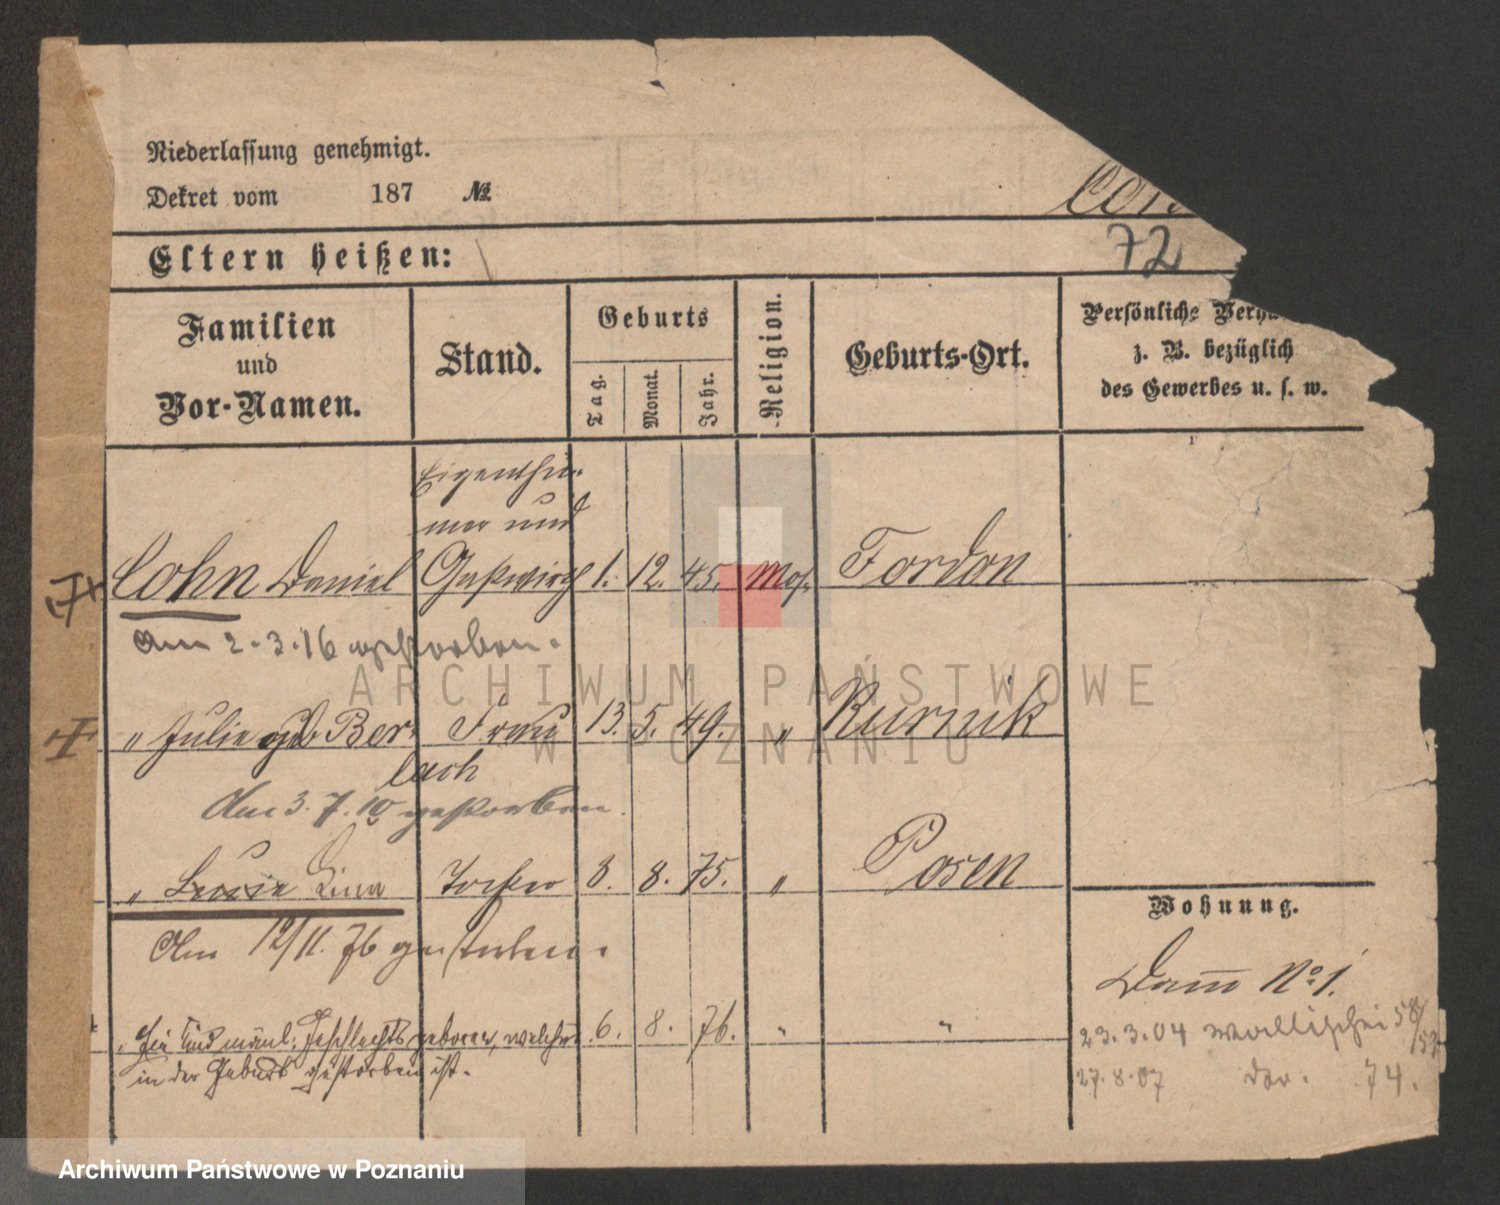 Niederlassung genehmigt.
Dekret vom 187 №
72
Eltern heißen:
Familien und Vor-Namen.
Stand.
Geburts
Tag.
Monat.
Jahr.
Religion.
Geburts-Ort.
Persönliche
z. B. bezüglich
des Gewerbes u. s. w.
Eigenthü-
mer und
Cohn Daniel Gastwirth 1. 12. 45. Mos. Fordon
Am 2.3.16 gestorben.
" Julie geb Ber- Frau 13. 5. 49. " Kurnik
lach
Am 3.7.10 gestorben.
" Lucie Lina Tochter 8. 8. 75. " Posen
Am 12/11. 76 gestorben.
" Ein Kind männl. Geschlechts geboren, welches 6. 8. 76. " "
in der Geburt gestorben ist.
Wohnung.
Damm No 1.
23.3.04 Wallischei 58/
27.8.07 do. 74.
ARCHIWUM PAŃSTWOWE
W POZNANIU
Archiwum Państwowe w Poznaniu